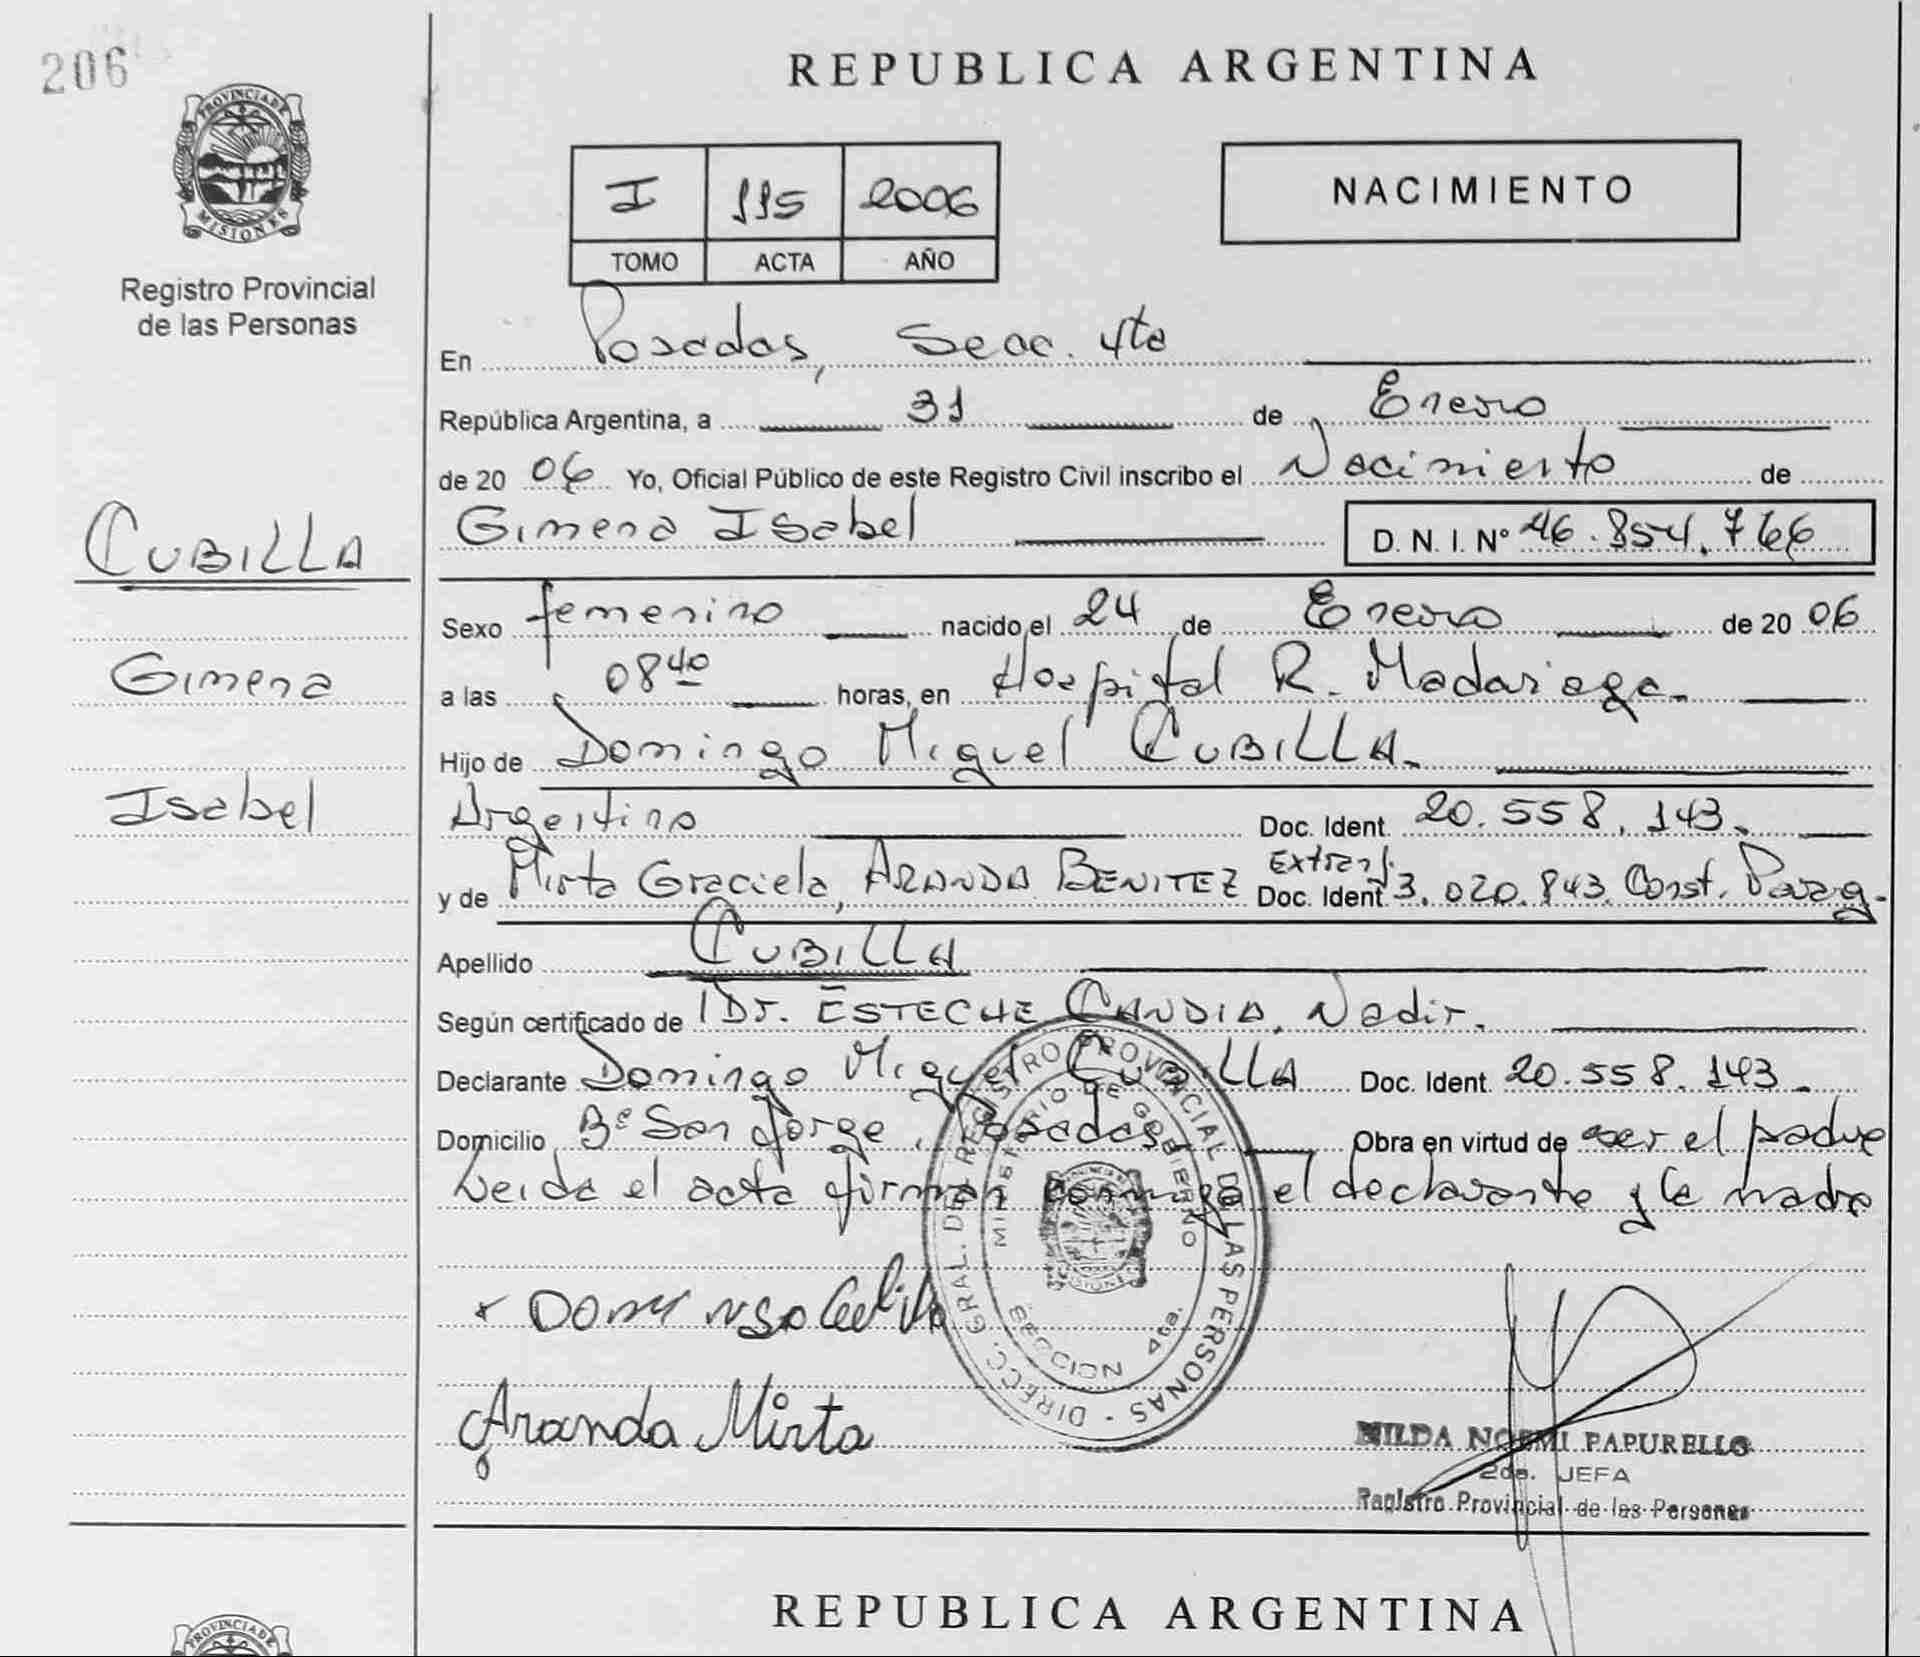 206
PROVINCIA DE
MISIONES
Registro Provincial
de las Personas
CUBILLA
Gimena
Isabel
REPUBLICA ARGENTINA
I 115 2006
TOMO ACTA AÑO
NACIMIENTO
En Posadas, Secc. 4ta
República Argentina, a 31 de Enero
de 20 06 Yo, Oficial Público de este Registro Civil inscribo el Nacimiento de
Gimena Isabel D. N. I. Nº 46.854.766
Sexo femenino nacido el 24 de Enero de 20 06
a las 08 40 horas, en Hospital R. Madariaga.
Hijo de Domingo Miguel CUBILLA.
Argentino Doc. Ident. 20.558.143.
y de Mirta Graciela, ARANDA BENITEZ Extranj. Doc. Ident 3.020.843. Const. Parag.
Apellido CUBILLA
Según certificado de Dr. ESTECHE CANDIA, Nadir.
Declarante Domingo Miguel CUBILLA Doc. Ident. 20.558.143.
Domicilio Bº San Jorge, Posadas. Obra en virtud de ser el padre
Leida el acta firman conmigo el declarante y la madre
DIRECC. GRAL. DEL REGISTRO PROVINCIAL DE LAS PERSONAS -
MINISTERIO DE GOBIERNO
SECCION 4ta.
Aranda Mirta
NOEMI PAPURELLO
2da. JEFA
Registro Provincial de las Personas
REPUBLICA ARGENTINA
PROVINCIA DE